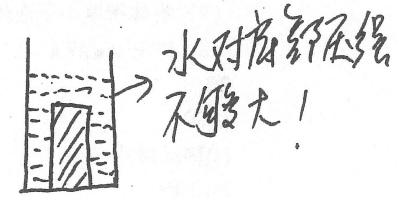 水对底部压强
不够大！